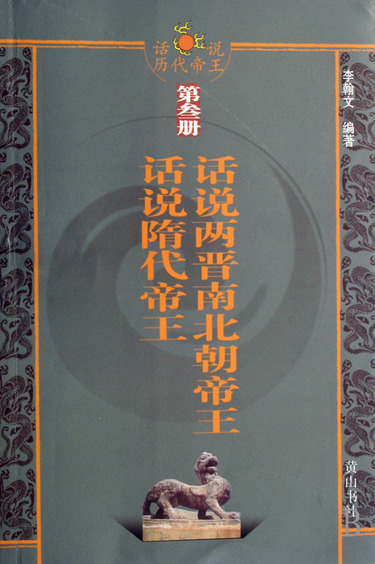 话说
历代帝王
第叁册
李翰文 编著
话说两晋南北朝帝王
话说隋代帝王
黄山书社